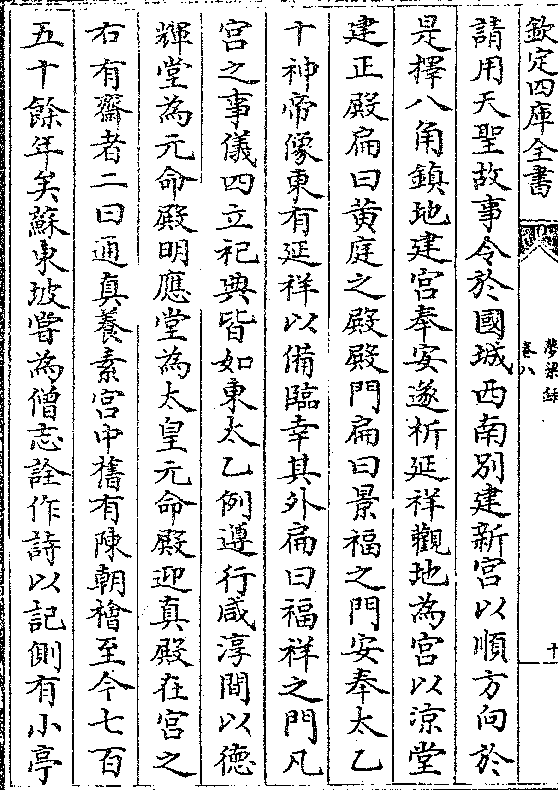 欽定四庫全書
夢粱録
卷八
十
請用天聖故事令於國城西南别建新宮以順方向於
是擇八角鎮地建宮奉安遂析延祥觀地為宮以涼堂
建正殿扁曰黄庭之殿殿門扁曰景福之門安奉太乙
十神帝像東有延祥以備臨幸其外扁曰福祥之門凡
宮之事儀四立祀典皆如東太乙例遵行咸淳間以德
輝堂為元命殿明應堂為太皇元命殿迎真殿在宮之
右有齋者二曰通真養素宮中舊有陳朝檜至今七百
五十餘年矣蘇東坡嘗為僧志詮作詩以記側有小亭